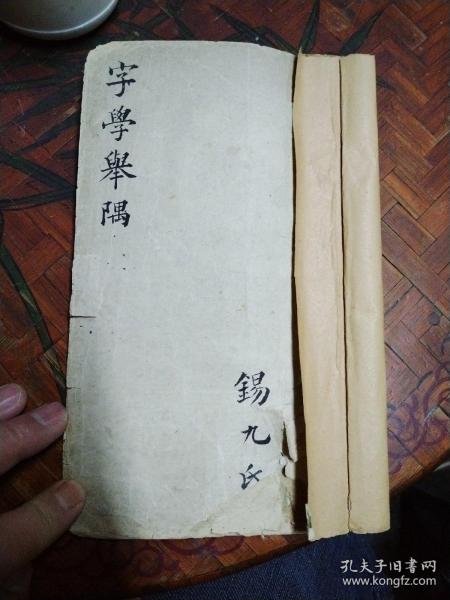 字學舉隅
錫九氏
孔夫子旧书网
www.kongfz.com